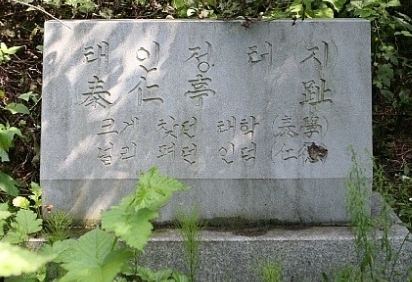 태인정 터지
泰仁亭 趾
크게 찾던 태학(泰學)
널리 펴던 인덕(仁德)